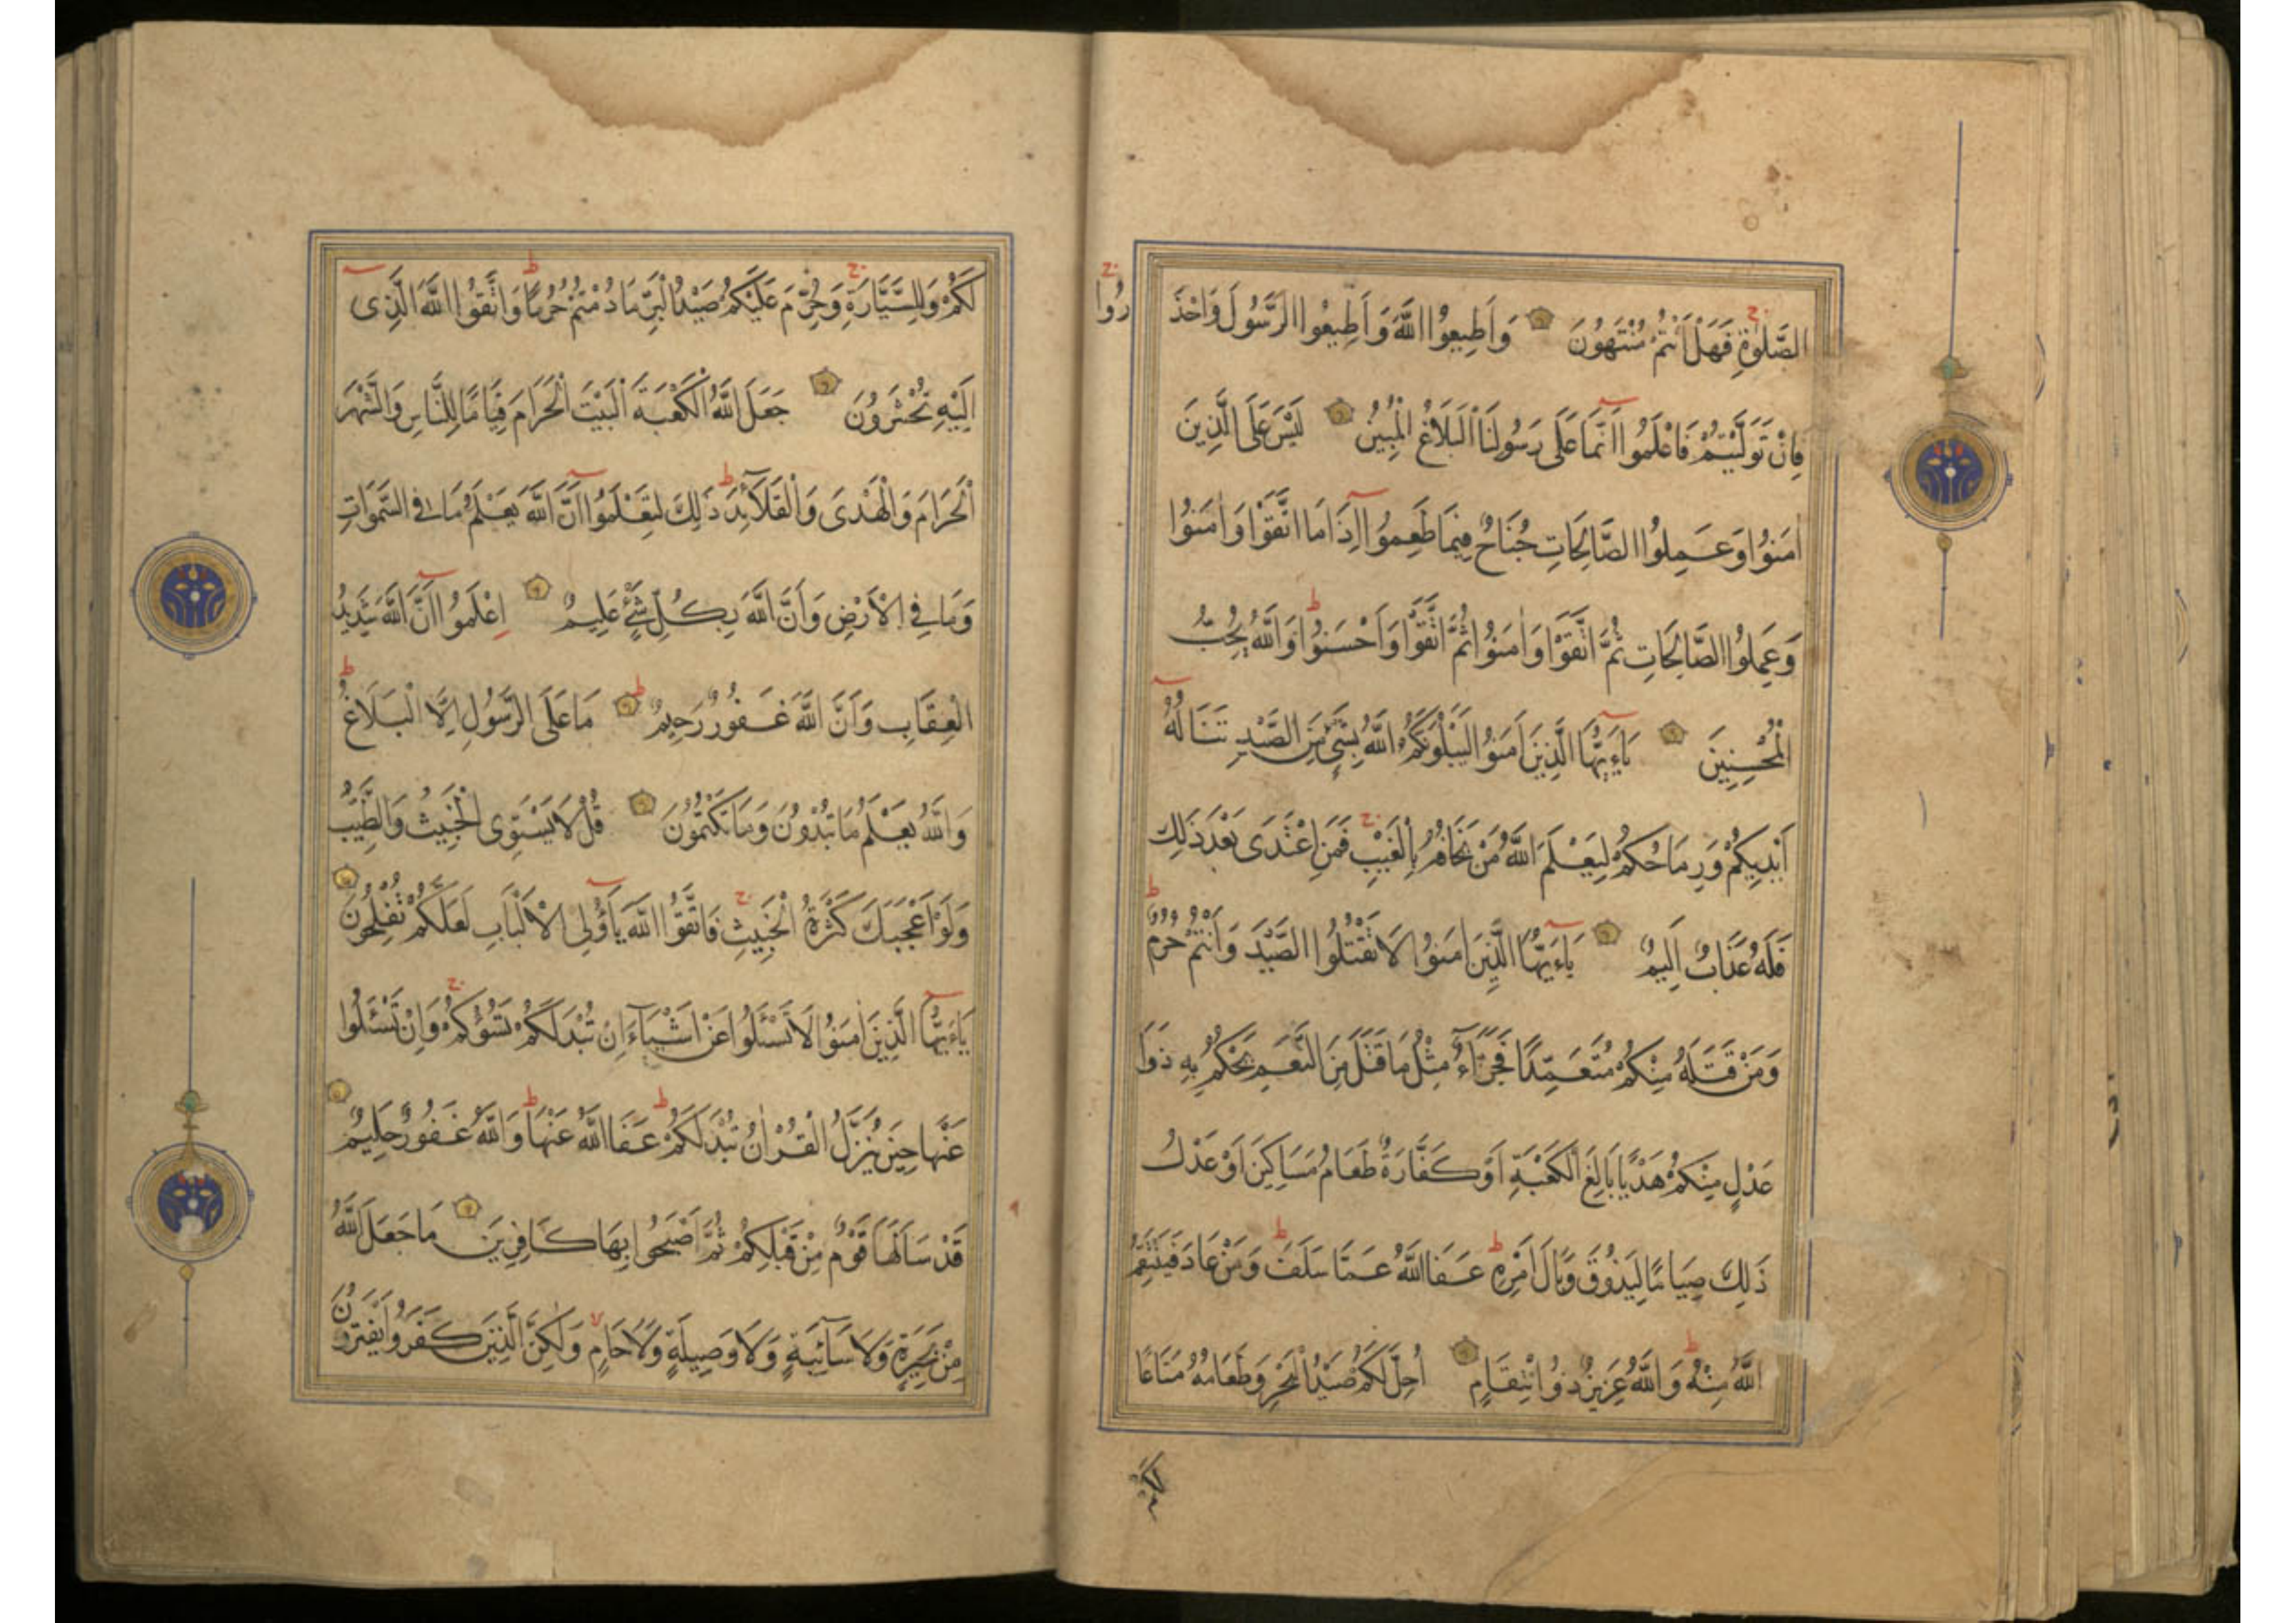 الصَّلٰوةِ فَهَلْ اَنْتُمْ مُنْتَهُونَ وَاَطِيعُوا اللَّهَ وَاَطِيعُوا الرَّسُولَ وَاحْذَرُوا
فَاِنْ تَوَلَّيْتُمْ فَاعْلَمُوا اَنَّمَا عَلَى رَسُولِنَا الْبَلَاغُ الْمُبِينُ لَيْسَ عَلَى الَّذِينَ
اٰمَنُوا وَعَمِلُوا الصَّالِحَاتِ جُنَاحٌ فِيمَا طَعِمُوا اِذَا مَا اتَّقَوْا وَاٰمَنُوا
وَعَمِلُوا الصَّالِحَاتِ ثُمَّ اتَّقَوْا وَاٰمَنُوا ثُمَّ اتَّقَوْا وَاَحْسَنُوا وَاللَّهُ يُحِبُّ
الْمُحْسِنِينَ يَاءَيُّهَا الَّذِينَ اٰمَنُوا لَيَبْلُوَنَّكُمُ اللَّهُ بِشَيْءٍ مِنَ الصَّيْدِ تَنَالُهُ
اَيْدِيكُمْ وَرِمَاحُكُمْ لِيَعْلَمَ اللَّهُ مَنْ يَخَافُهُ بِالْغَيْبِ فَمَنِ اعْتَدَى بَعْدَ ذَلِكَ
فَلَهُ عَذَابٌ اَلِيمٌ يَاءَيُّهَا الَّذِينَ اٰمَنُوا لَا تَقْتُلُوا الصَّيْدَ وَاَنْتُمْ حُرُمٌ
وَمَنْ قَتَلَهُ مِنْكُمْ مُتَعَمِّدًا فَجَزَاءٌ مِثْلُ مَا قَتَلَ مِنَ النَّعَمِ يَحْكُمُ بِهِ ذَوَا
عَدْلٍ مِنْكُمْ هَدْيًا بَالِغَ الْكَعْبَةِ اَوْ كَفَّارَةٌ طَعَامُ مَسَاكِينَ اَوْ عَدْلُ
ذَلِكَ صِيَامًا لِيَذُوقَ وَبَالَ اَمْرِهِ عَفَا اللَّهُ عَمَّا سَلَفَ وَمَنْ عَادَ فَيَنْتَقِمُ
اللَّهُ مِنْهُ وَاللَّهُ عَزِيزٌ ذُو انْتِقَامٍ اُحِلَّ لَكُمْ صَيْدُ الْبَحْرِ وَطَعَامُهُ مَتَاعًا
لَكُمْ وَلِلسَّيَّارَةِ وَحُرِّمَ عَلَيْكُمْ صَيْدُ الْبَرِّ مَا دُمْتُمْ حُرُمًا وَاتَّقُوا اللَّهَ الَّذِى
اِلَيْهِ تُحْشَرُونَ جَعَلَ اللَّهُ الْكَعْبَةَ الْبَيْتَ الْحَرَامَ قِيَامًا لِلنَّاسِ وَالشَّهْرَ
الْحَرَامَ وَالْهَدْىَ وَالْقَلَآئِدَ ذَلِكَ لِتَعْلَمُوا اَنَّ اللَّهَ يَعْلَمُ مَا فِى السَّمٰوَاتِ
وَمَا فِى الْاَرْضِ وَاَنَّ اللَّهَ بِكُلِّ شَىْءٍ عَلِيمٌ اِعْلَمُوا اَنَّ اللَّهَ شَدِيدُ
الْعِقَابِ وَاَنَّ اللَّهَ غَفُورٌ رَحِيمٌ مَا عَلَى الرَّسُولِ اِلَّا الْبَلَاغُ
وَاللَّهُ يَعْلَمُ مَا تُبْدُونَ وَمَا تَكْتُمُونَ قُلْ لَا يَسْتَوِى الْخَبِيثُ وَالطَّيِّبُ
وَلَوْ اَعْجَبَكَ كَثْرَةُ الْخَبِيثِ فَاتَّقُوا اللَّهَ يَا اُولِى الْاَلْبَابِ لَعَلَّكُمْ تُفْلِحُونَ
يَاءَيُّهَا الَّذِينَ اٰمَنُوا لَا تَسْئَلُوا عَنْ اَشْيَآءَ اِنْ تُبْدَ لَكُمْ تَسُؤْكُمْ وَاِنْ تَسْئَلُوا
عَنْهَا حِينَ يُنَزَّلُ الْقُرْاٰنُ تُبْدَ لَكُمْ عَفَا اللَّهُ عَنْهَا وَاللَّهُ غَفُورٌ حَلِيمٌ
قَدْ سَاَلَهَا قَوْمٌ مِنْ قَبْلِكُمْ ثُمَّ اَصْبَحُوا بِهَا كَافِرِينَ مَا جَعَلَ اللَّهُ
مِنْ بَحِيرَةٍ وَلَا سَآئِبَةٍ وَلَا وَصِيلَةٍ وَلَا حَامٍ وَلَكِنَّ الَّذِينَ كَفَرُوا يَفْتَرُونَ